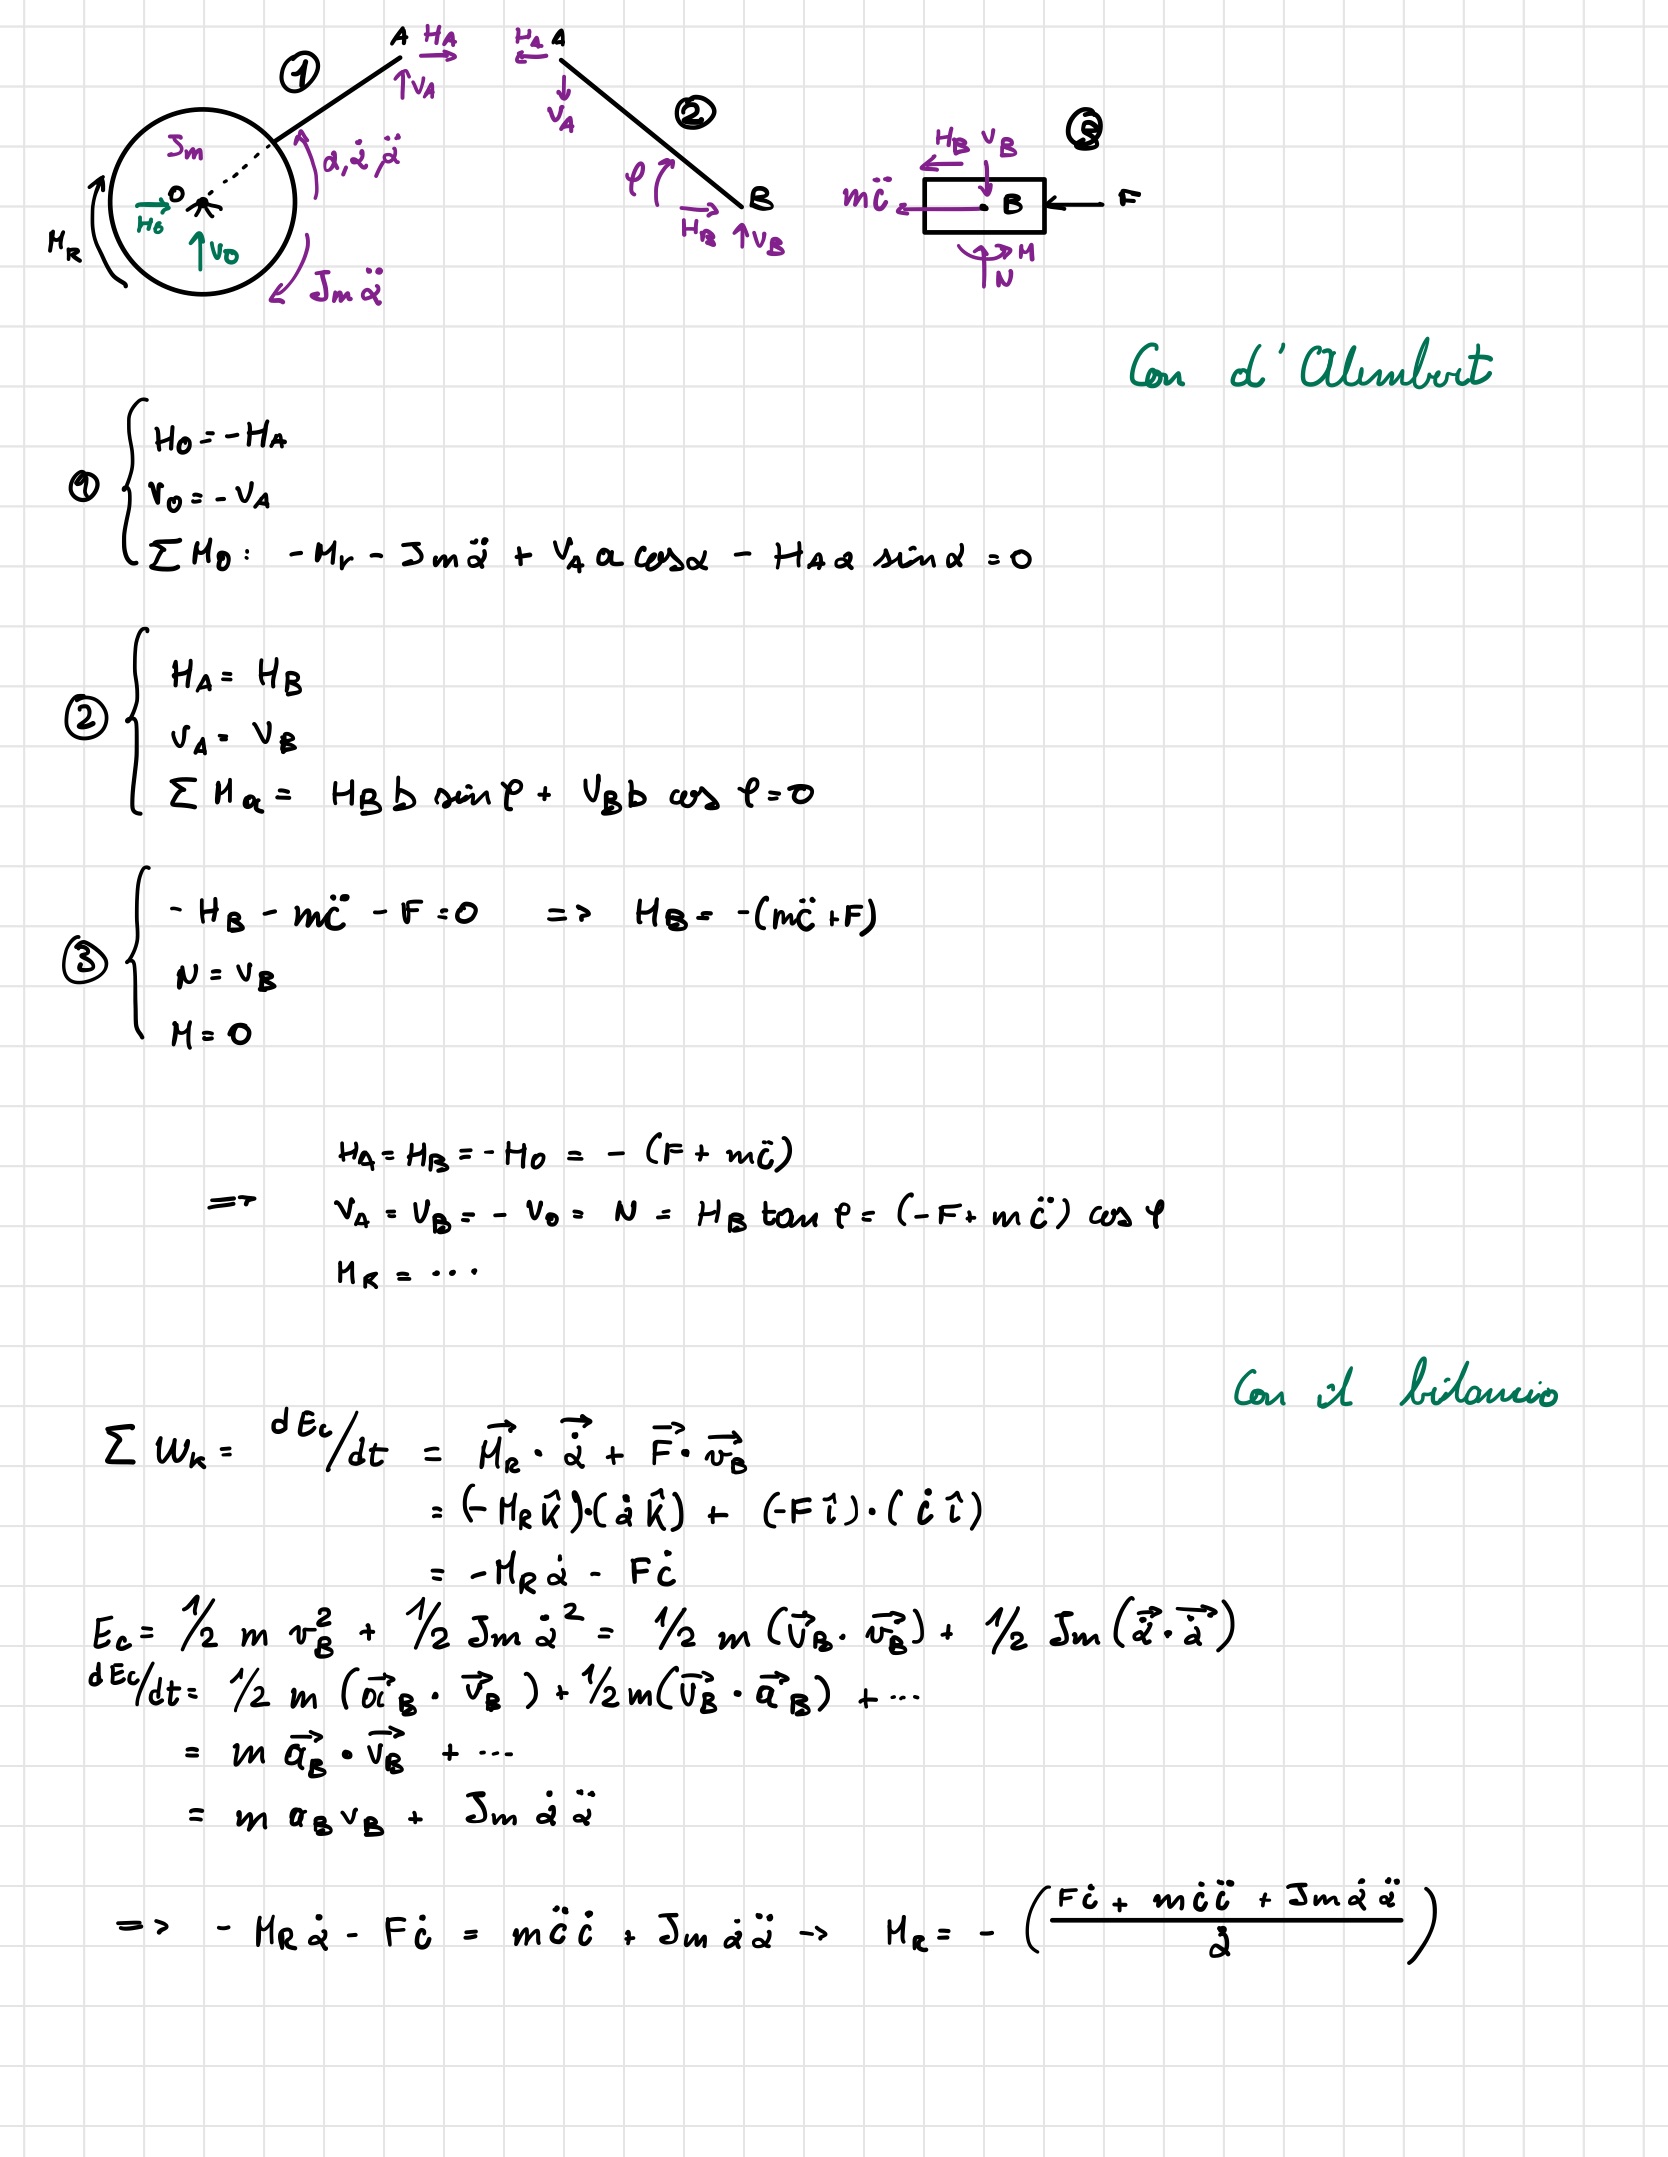 ① A H_A V_A J_m O H_0 V_0 M_R α, α̇, α̈ J_m α̈
H_A A V_A ② φ B H_B V_B
③ H_B V_B mc̈ B F M N
Con d'Alembert
① H_0 = -H_A
V_0 = -V_A
∑ M_0: -M_r - J_m α̈ + V_A a cos α - H_A a sin α = 0
② H_A = H_B
V_A = V_B
∑ M_a = H_B b sin φ + V_B b cos φ = 0
③ -H_B - mc̈ - F = 0 => H_B = -(mc̈ + F)
N = V_B
M = 0
H_A = H_B = -H_0 = -(F + mc̈)
=> V_A = V_B = -V_0 = N = H_B tan φ = (-F + mc̈) cos φ
M_R = ...
Con il bilancio
∑ W_k = dE_c/dt = M⃗_R · α̇⃗ + F⃗ · v⃗_B
= (-M_R k̂)·(α̇ k̂) + (-F î)·(ċ î)
= -M_R α̇ - Fċ
E_c = 1/2 m v_B² + 1/2 J_m α̇² = 1/2 m (v⃗_B · v⃗_B) + 1/2 J_m (α̇⃗ · α̇⃗)
dE_c/dt = 1/2 m (a⃗_B · v⃗_B) + 1/2 m (v⃗_B · a⃗_B) + ...
= m a⃗_B · v⃗_B + ...
= m a_B v_B + J_m α̇ α̈
=> -M_R α̇ - Fċ = mc̈ċ + J_m α̇ α̈ -> M_R = -((Fċ + mċc̈ + J_m α̇ α̈)/α̇)